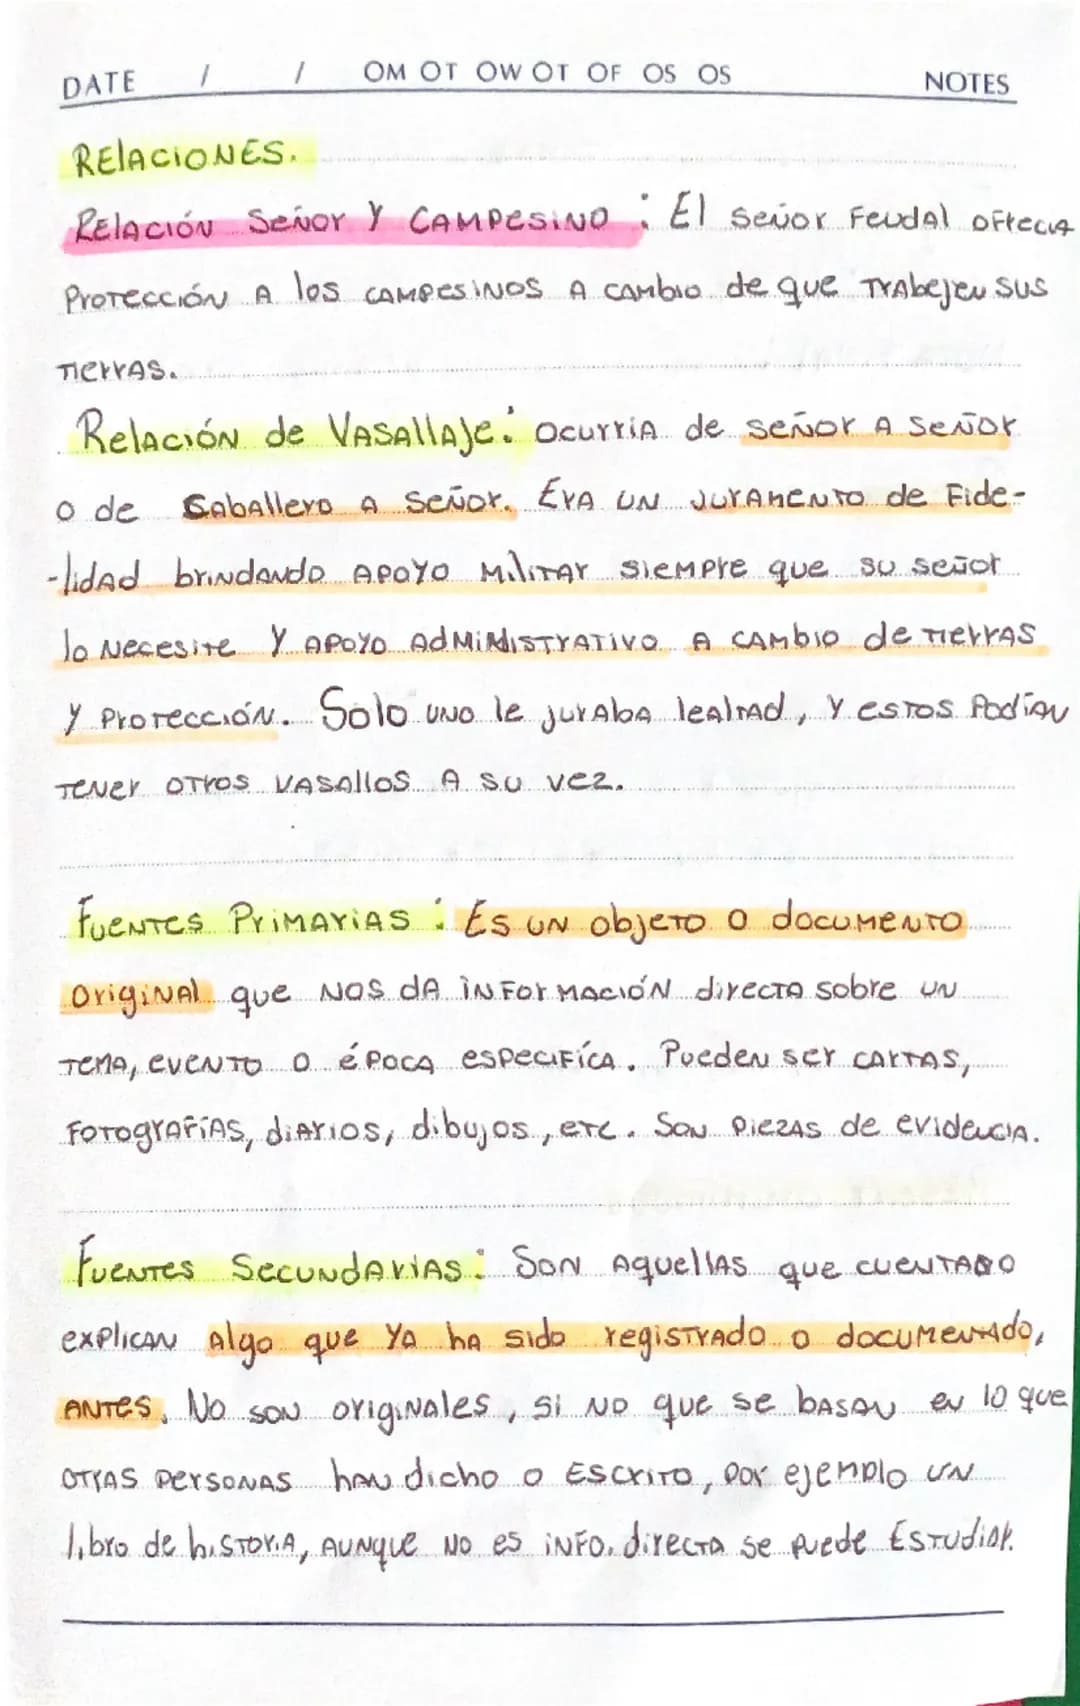 DATE / / OM OT OW OT OF OS OS NOTES
RELACIONES.
RELACIÓN SEÑOR Y CAMPESINO : El señor Feudal ofrecia
PROTECCIÓN A los CAMPESINOS A CAMBIO de que TRAbejen sus
TIERRAS.
RELACIÓN de VASAllAJE: ocurriA de señor A SEÑOR
o de CabAllero A SEÑOR. ERA UN JURAMENTO de Fide-
-lidAd brindando APOYO MilitAr siempre que su señor
lo NECESITE Y APOYO AdMINISTRATIVO A CAMbio de TIERRAS
Y PROTECCIÓN. Solo uno le jurAbA lealtad, Y ESTOS PodíAN
TENER OTROS VASAllos A su vez.
FUENTES PRIMARIAS : Es UN objeto o documento
ORIGINAl que NOS dA INFORMACIÓN directA sobre UN
TEMA, EVENTO O éPOCA especifíca. Pueden ser CARTAS,
FOTOgrAfíAS, diArios, dibujos, etc. Son PiezAS de evidencia.
FUENTES SECUNDARIAS: Son Aquellas que cuentan o
explican Algo que YA hA sido registrado o documentado,
ANTES. No son originales, si no que se basan en lo que
OTRAS PERSONAS han dicho o escrito, por ejemplo UN
libro de historia, AUNque NO es INFO. directA se puede EStudiar.